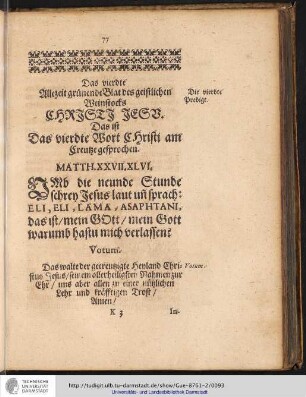 77
Das vierdte
Allezeit grünende Blat des geistlichen
Weinstocks
CHRISTI JESU.
Das ist
Das vierdte Wort CHristi am
Creutze gesprochen.
Die vierdte
Predigt.
MATTH. XXVII, XLVI,
UMb die neunde Stunde
schrey Jesus laut uñ sprach:
ELI, ELI, LAMA, ASAPHTANI,
das ist/mein GOtt/mein Gott
warumb hastu mich verlassen?
Votum.
Das walte der gecreutzigte Heyland Chri-
stus Jesus/seinem allerheiligsten Nahmen zur
Ehr/uns aber allen zu einer nützlichen
Lehr und kräfftigen Trost/
Amen/
Votum.
K 3
Im-
http://tudigit.ulb.tu-darmstadt.de/show/Gue-8751-2/0093
Universitäts- und Landesbibliothek Darmstadt